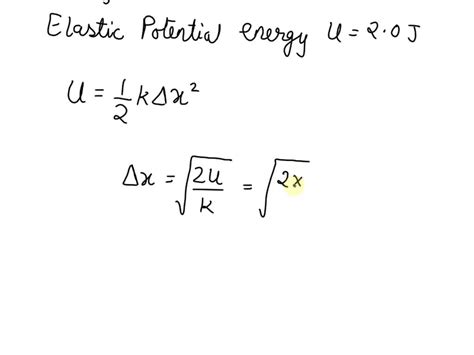 Elastic Potential energy U = 2.0 J
U = 1/2 kΔx²
Δx = √(2U/k) = √(2x